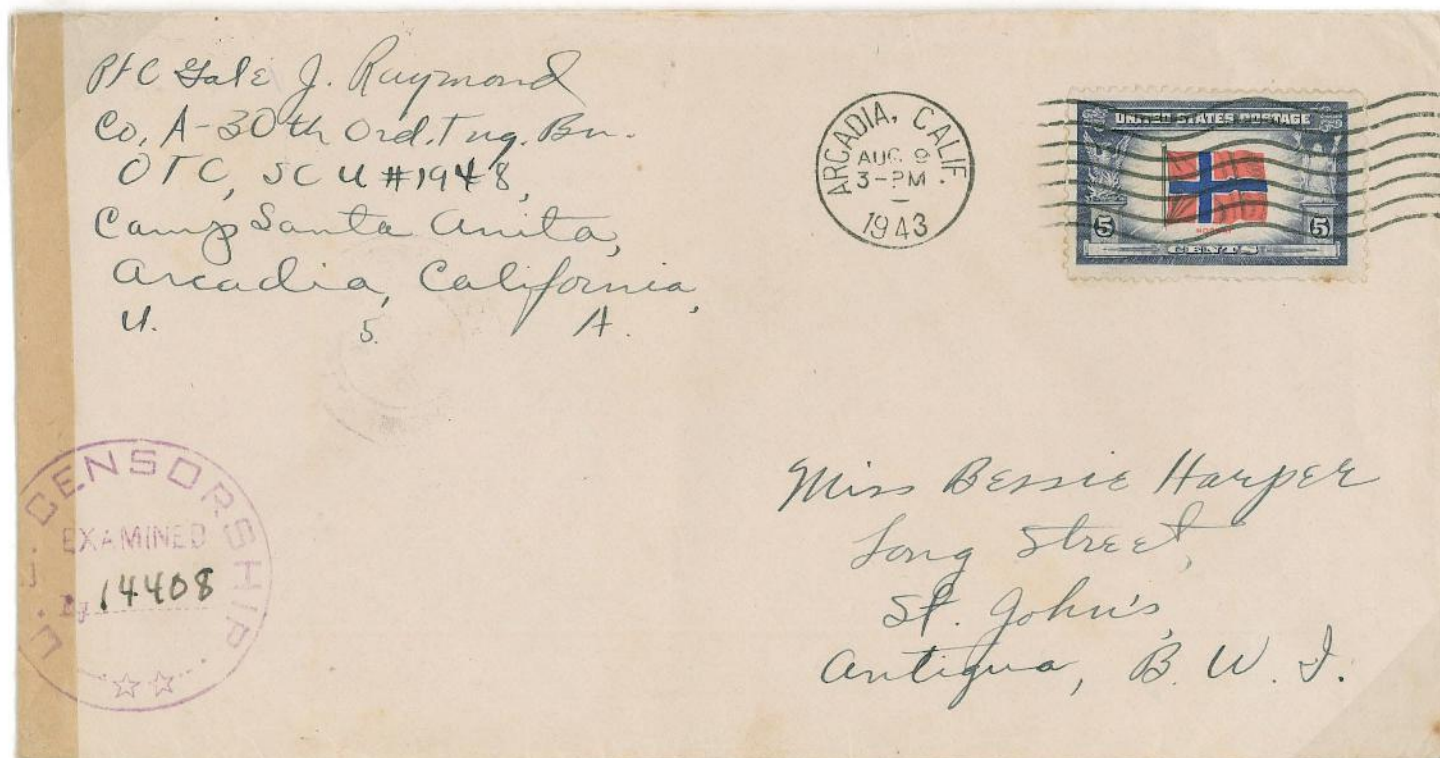 Pfc Gale J. Raymond
Co, A-30th Ord. Tng. Bn.
OTC, SCU #1948,
Camp Santa Anita,
Arcadia, California,
U. S. A.
ARCADIA, CALIF.
AUG 9
3-PM
1943
UNITED STATES POSTAGE
NORWAY
5 CENTS 5
U.S. CENSORSHIP
EXAMINED
By 14408
Miss Bessie Harper
Long Street,
St. John's,
Antigua, B. W. I.